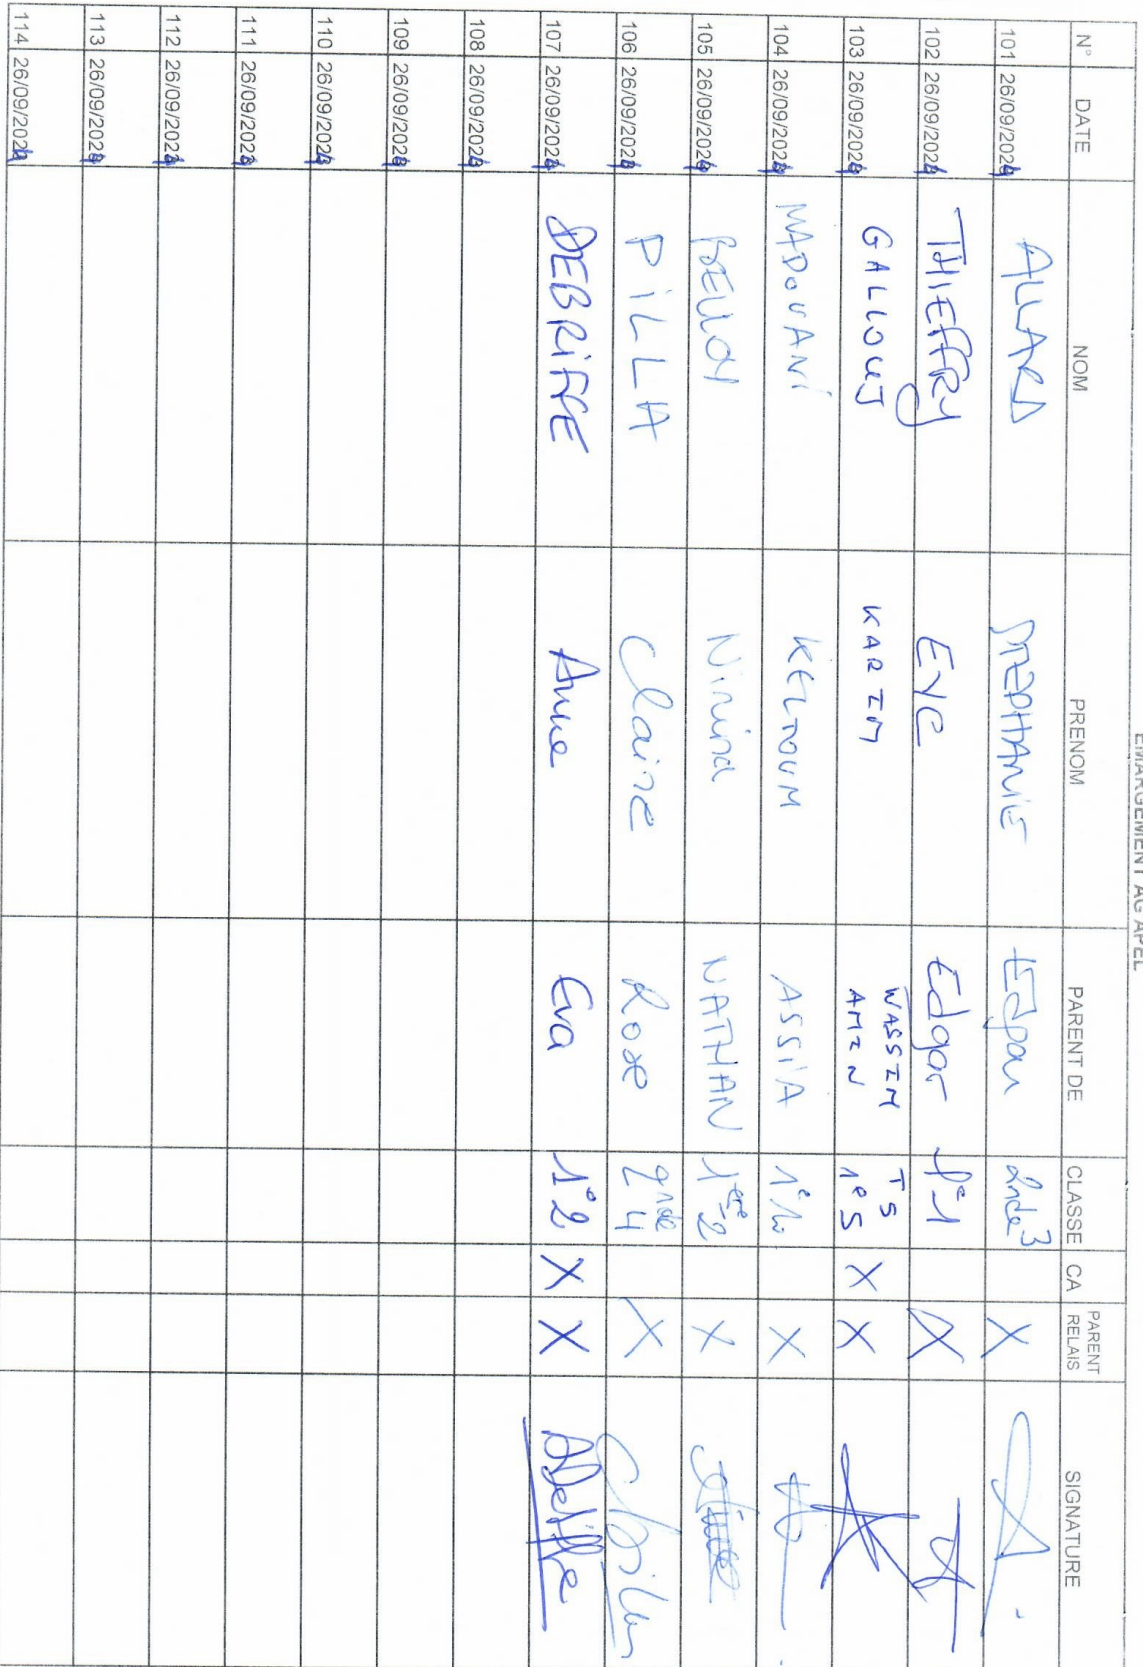 EMARGEMENT AG APEL
N° DATE NOM PRENOM PARENT DE CLASSE CA PARENT RELAIS SIGNATURE
101 26/09/2024 ALLARD STEPHANIE Edgar 2nde 3 X
102 26/09/2024 THIEFFRY EVE Edgar 1e1 X
103 26/09/2024 GALLOUJ KARIM WASSIM TS X X
AMIN 1e5
104 26/09/2024 MADOUANI KELTOUM ASSIA X
105 26/09/2024 BELLOY Nirina NATHAN 1ere-2 X
106 26/09/2024 PILLA Claire Rose 2nde 4 X
107 26/09/2024 DEBRIFFE Anne Eva 1°2 X X
108 26/09/2024
109 26/09/2024
110 26/09/2024
111 26/09/2024
112 26/09/2024
113 26/09/2024
114 26/09/2024